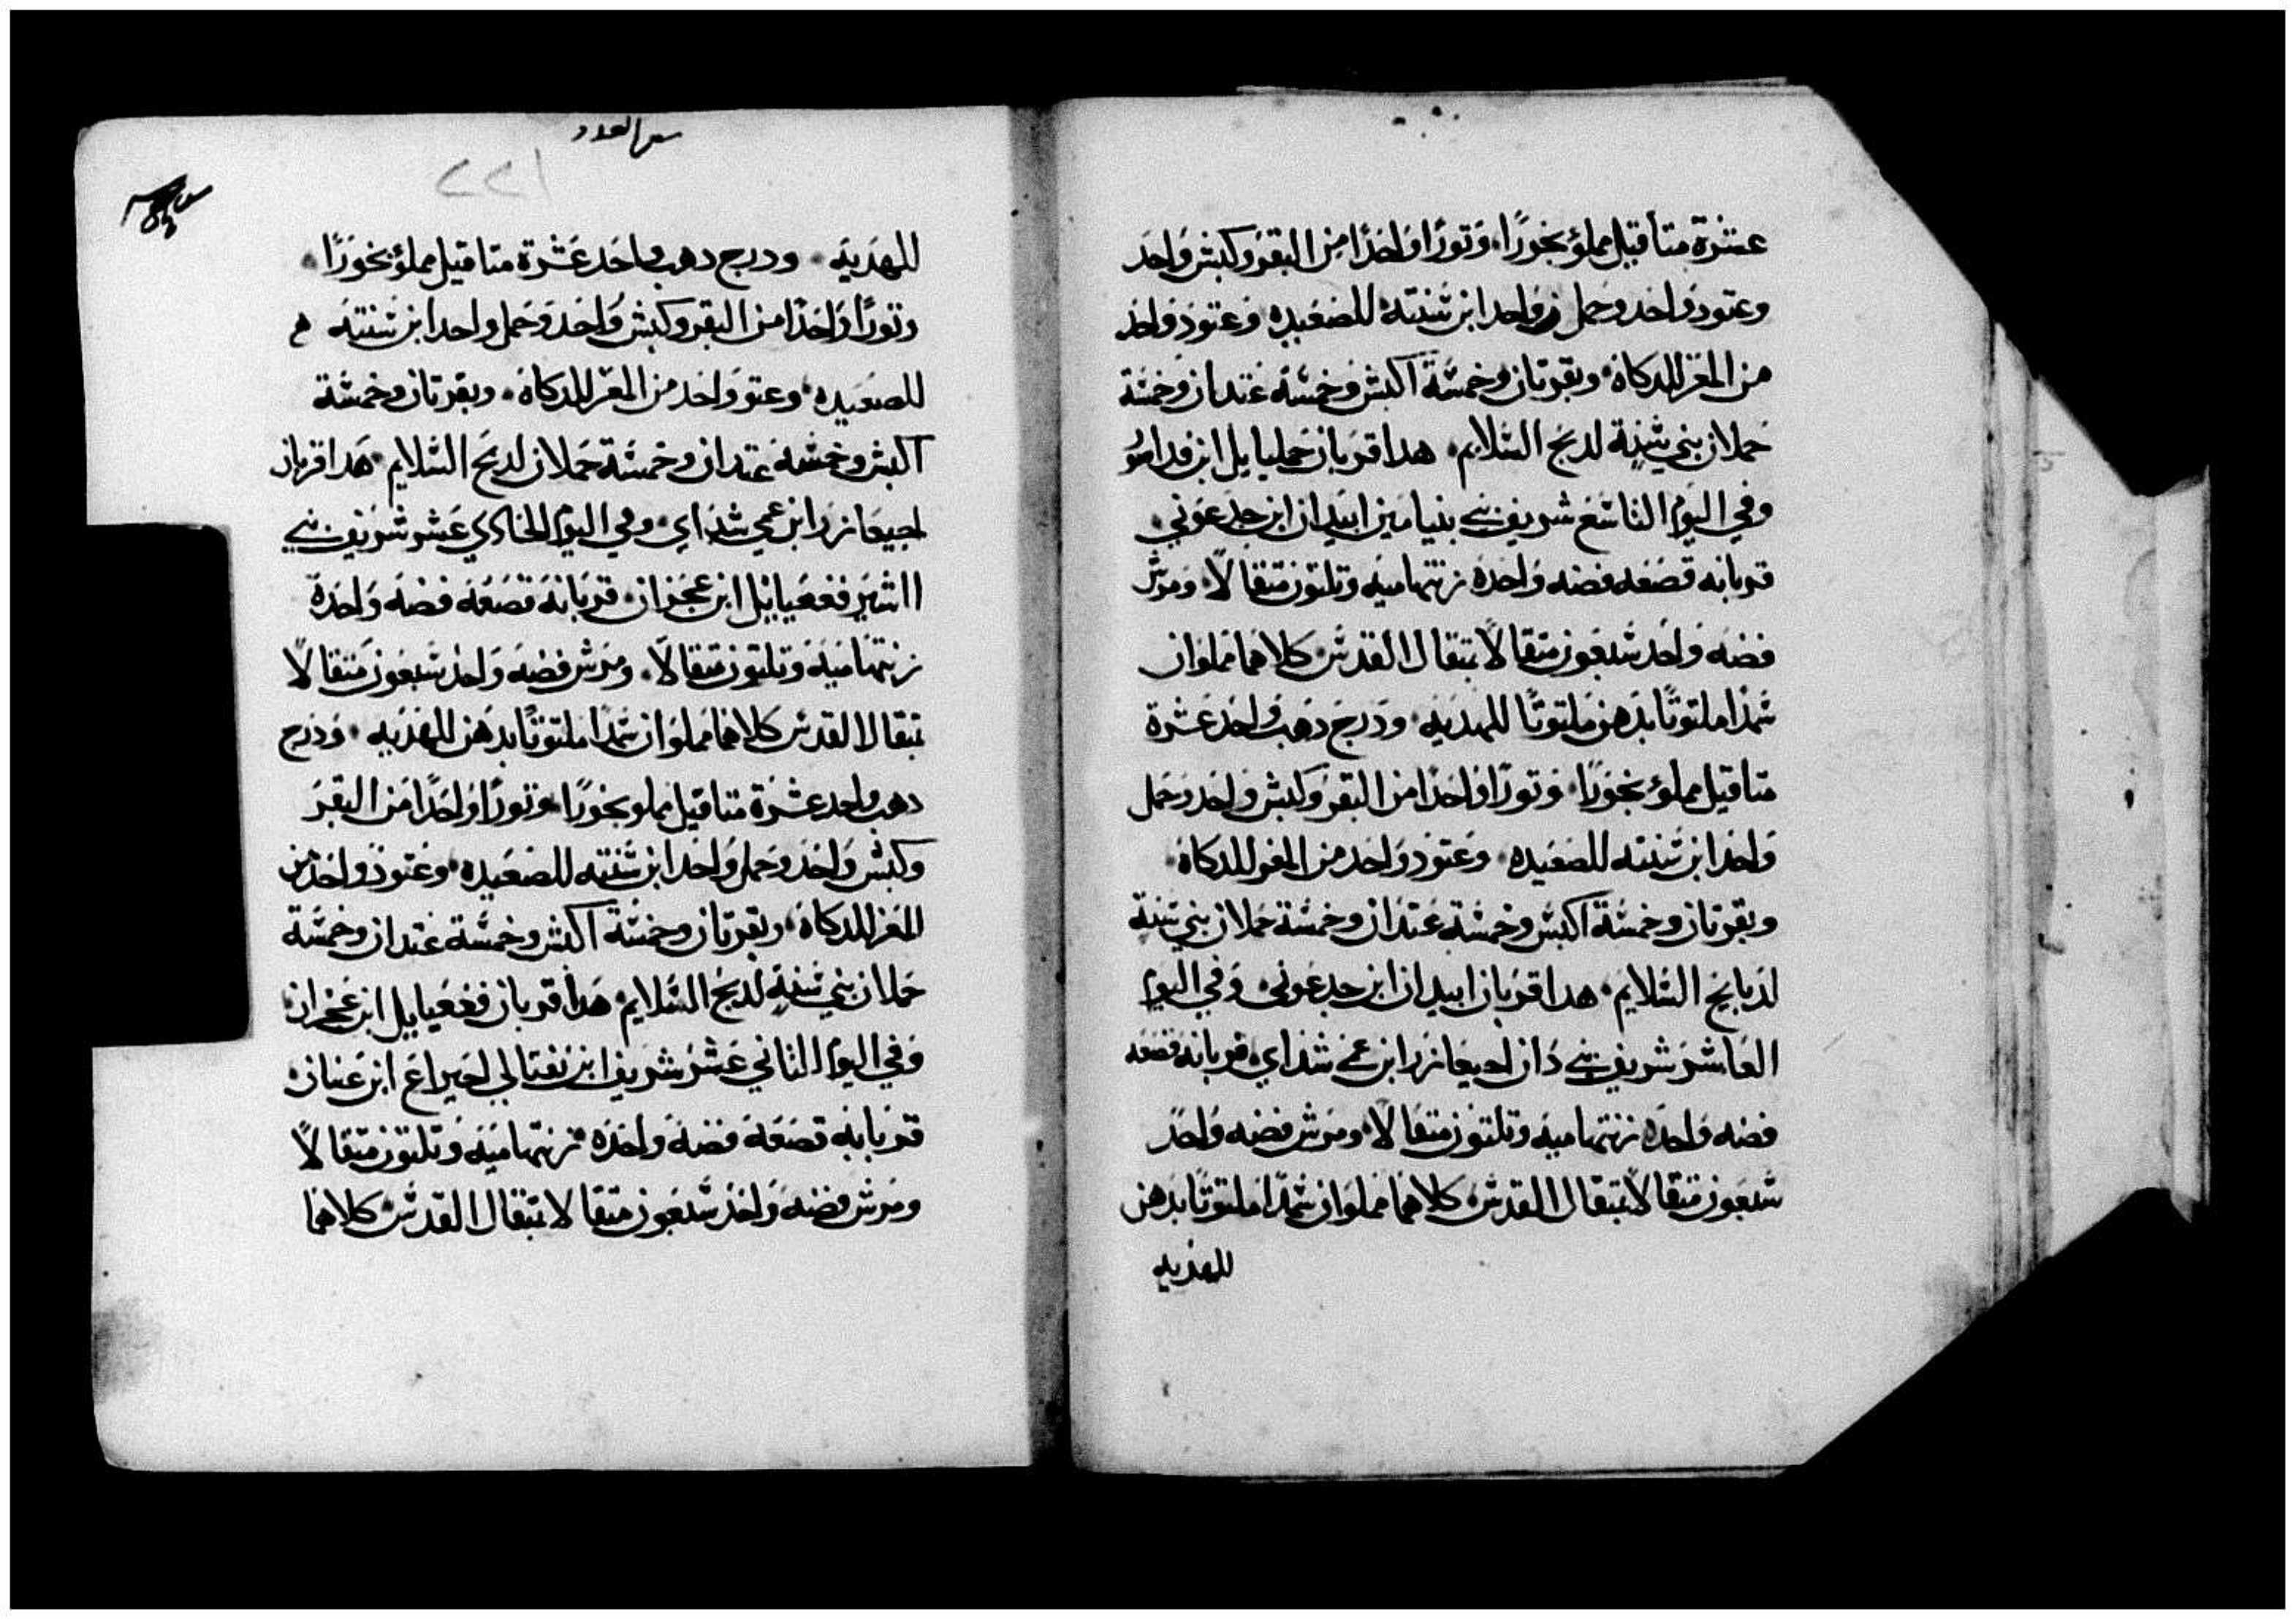 عشرة متاقيل مملؤ بخورًا. وتورًا واحدًا من البقر وكبش واحد
وعتود واحد وحمل واحد ابن سنته للصعيده وعتود واحد
من المعز للدكاة. وبقرتان وخمسة اكبش وخمسة عتدان وخمسة
حملان بني سنة لدبح السلايم. هدا قربان جمليايل ابن
وفي اليوم التاسع شريف بني بنيامين ابيدان ابن جدعوني.
قربانه قصعه فضه واحده زنتها ميه وتلتون متقالًا. ومرش
فضه واحد سبعون متقالًا بمتقال القدس كلاهما مملوان
سمدًا ملتوتًا بدهن ملتوتًا للهديه. ودرج دهب واحد عشرة
متاقيل مملؤ بخورًا. وتورًا واحدًا من البقر وكبش واحد وحمل
واحد ابن سنته للصعيده. وعتود واحد من المعز للدكاة.
وبقرتان وخمسة اكبش وخمسة عتدان وخمسة حملان بني سنة
لدبايح السلايم. هدا قربان ابيدان ابن جدعوني. وفي اليوم
العاشر شريف بني دان احيعازر ابن عمي شداي. قربانه قصعه
فضه واحده زنتها ميه وتلتون متقالًا. ومرش فضه واحد
سبعون متقالًا بمتقال القدس. كلاهما مملوان سمدًا ملتوتًا بدهن
للهديه
سفر العدد
٢٢١
للهديه. ودرج دهب واحد عشرة متاقيل مملؤ بخورًا.
وتورًا واحدًا من البقر وكبش واحد وحمل واحد ابن سنته
للصعيده. وعتو واحد من المعز للدكاة. وبقرتان وخمسة
اكبش وخمسة عتدان وخمسة حملان لدبح السلايم. هدا قربان
احيعازر ابن عمي شداي. وفي اليوم الحادي عشر شريف بني
اشير فغعيايل ابن عجران. قربانه قصعه فضه واحدة
زنتها ميه وتلتون متقالًا. ومرش فضه واحد سبعون متقالًا
بمتقال القدس كلاهما مملوان سمدًا ملتوتًا بدهن للهديه. ودرج
دهب واحد عشرة متاقيل مملو بخورًا. وتورًا واحدًا من البقر
وكبش واحد وحمل واحد ابن سنته للصعيده. وعتود واحد من
المعز للدكاة. وبقرتان وخمسة اكبش وخمسة عتدان وخمسة
حملان بني سنة لدبح السلايم. هدا قربان فغعيايل ابن عجران.
وفي اليوم التاني عشر شريف ابن نفتالي احيراع ابن عنيان.
قربانه قصعه فضه واحده. زنتها ميه وتلتون متقالًا
ومرش فضه واحد سبعون متقالا بمتقال القدس. كلاهما